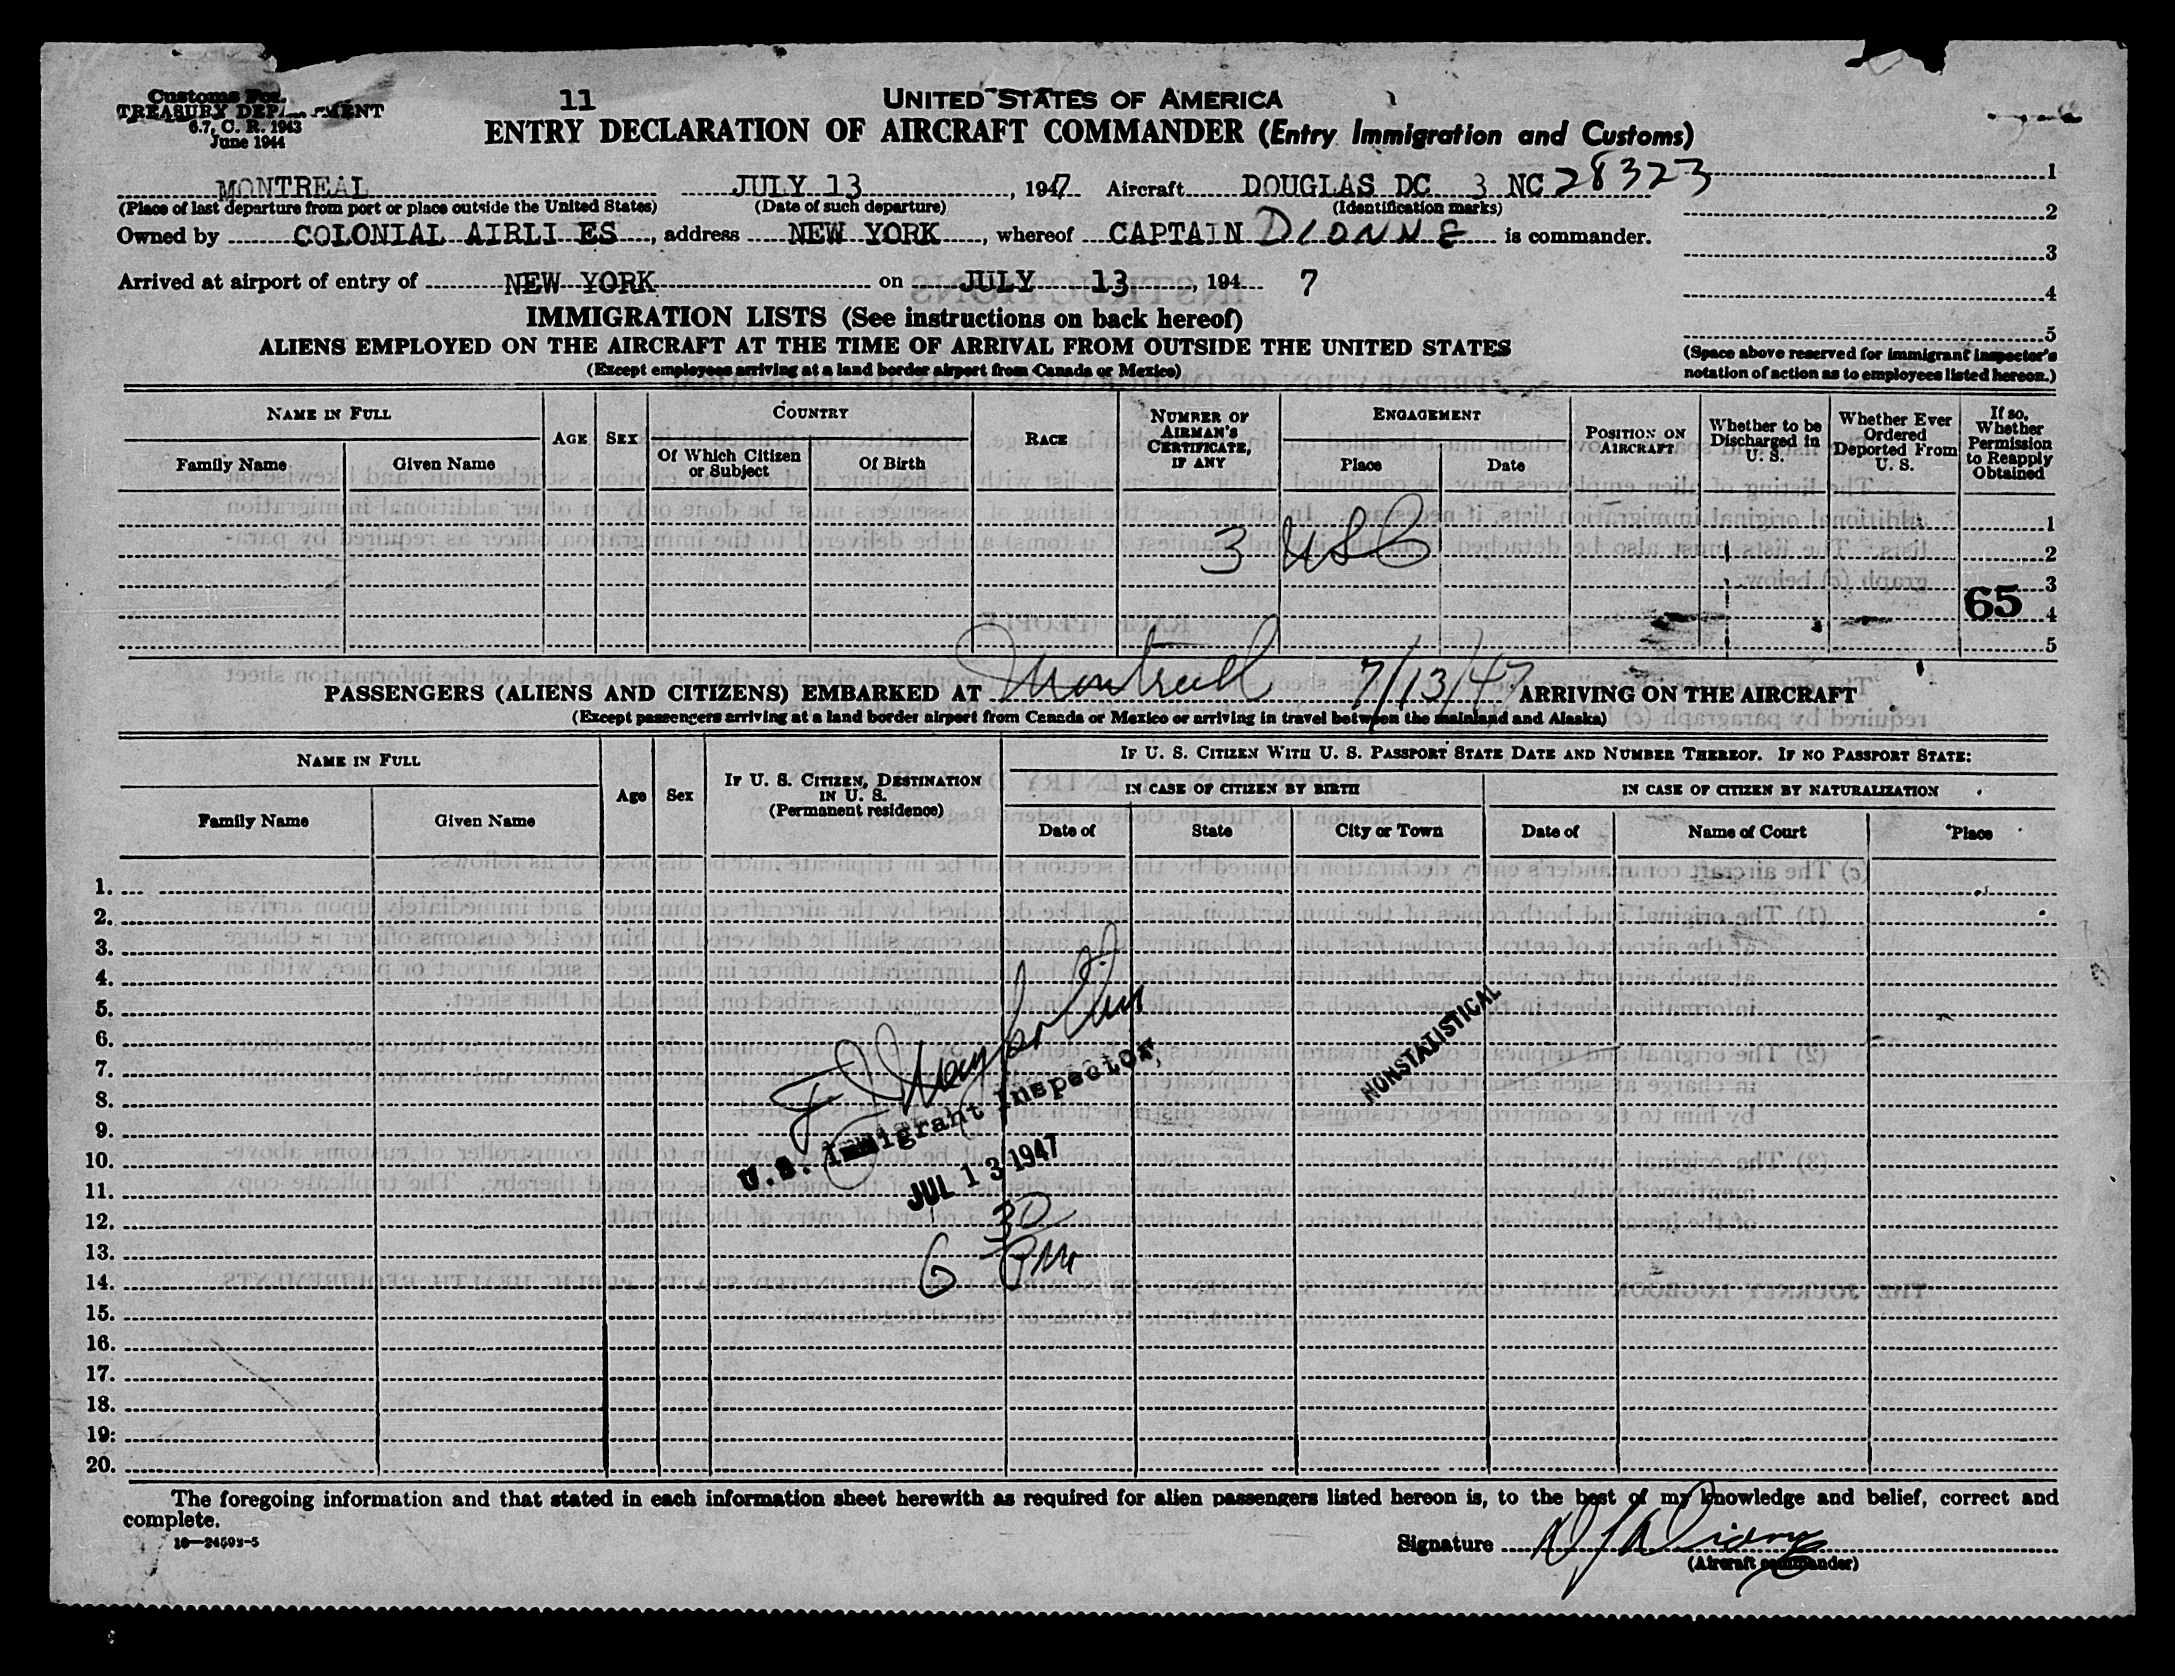 Customs For
TREASURY DEPARTMENT
6.7, C. R. 1943
June 1944
11
UNITED STATES OF AMERICA
ENTRY DECLARATION OF AIRCRAFT COMMANDER (Entry Immigration and Customs)
MONTREAL JULY 13, 1947 Aircraft DOUGLAS DC 3 NC 28323
(Place of last departure from port or place outside the United States) (Date of such departure) (Identification marks)
Owned by COLONIAL AIRLI ES, address NEW YORK, whereof CAPTAIN DIONNE is commander.
Arrived at airport of entry of NEW YORK on JULY 13, 194 7
1
2
3
4
5
(Space above reserved for immigrant inspector's notation of action as to employees listed hereon.)
IMMIGRATION LISTS (See instructions on back hereof)
ALIENS EMPLOYED ON THE AIRCRAFT AT THE TIME OF ARRIVAL FROM OUTSIDE THE UNITED STATES
(Except employees arriving at a land border airport from Canada or Mexico)
NAME IN FULL
Family Name
Given Name
AGE
SEX
COUNTRY
Of Which Citizen or Subject
Of Birth
RACE
NUMBER OF AIRMAN'S CERTIFICATE, IF ANY
ENGAGEMENT
Place
Date
POSITION ON AIRCRAFT
Whether to be Discharged in U. S.
Whether Ever Ordered Deported From U. S.
If so, Whether Permission to Reapply Obtained
1
3 USC
2
3
65
4
5
PASSENGERS (ALIENS AND CITIZENS) EMBARKED AT Montreal 7/13/47 ARRIVING ON THE AIRCRAFT
(Except passengers arriving at a land border airport from Canada or Mexico or arriving in travel between the mainland and Alaska)
NAME IN FULL
Family Name
Given Name
Age
Sex
IF U. S. CITIZEN, DESTINATION IN U. S.
(Permanent residence)
IF U. S. CITIZEN WITH U. S. PASSPORT STATE DATE AND NUMBER THEREOF. IF NO PASSPORT STATE:
IN CASE OF CITIZEN BY BIRTH
Date of
State
City or Town
IN CASE OF CITIZEN BY NATURALIZATION
Date of
Name of Court
Place
1.
2.
3.
4.
5.
6.
7.
8.
9.
10.
11.
12.
13.
14.
15.
16.
17.
18.
19.
20.
U.S. Immigrant Inspector,
JUL 13 1947
6 30 PM
NONSTATISTICAL
The foregoing information and that stated in each information sheet herewith as required for alien passengers listed hereon is, to the best of my knowledge and belief, correct and
complete.
Signature
(Aircraft commander)